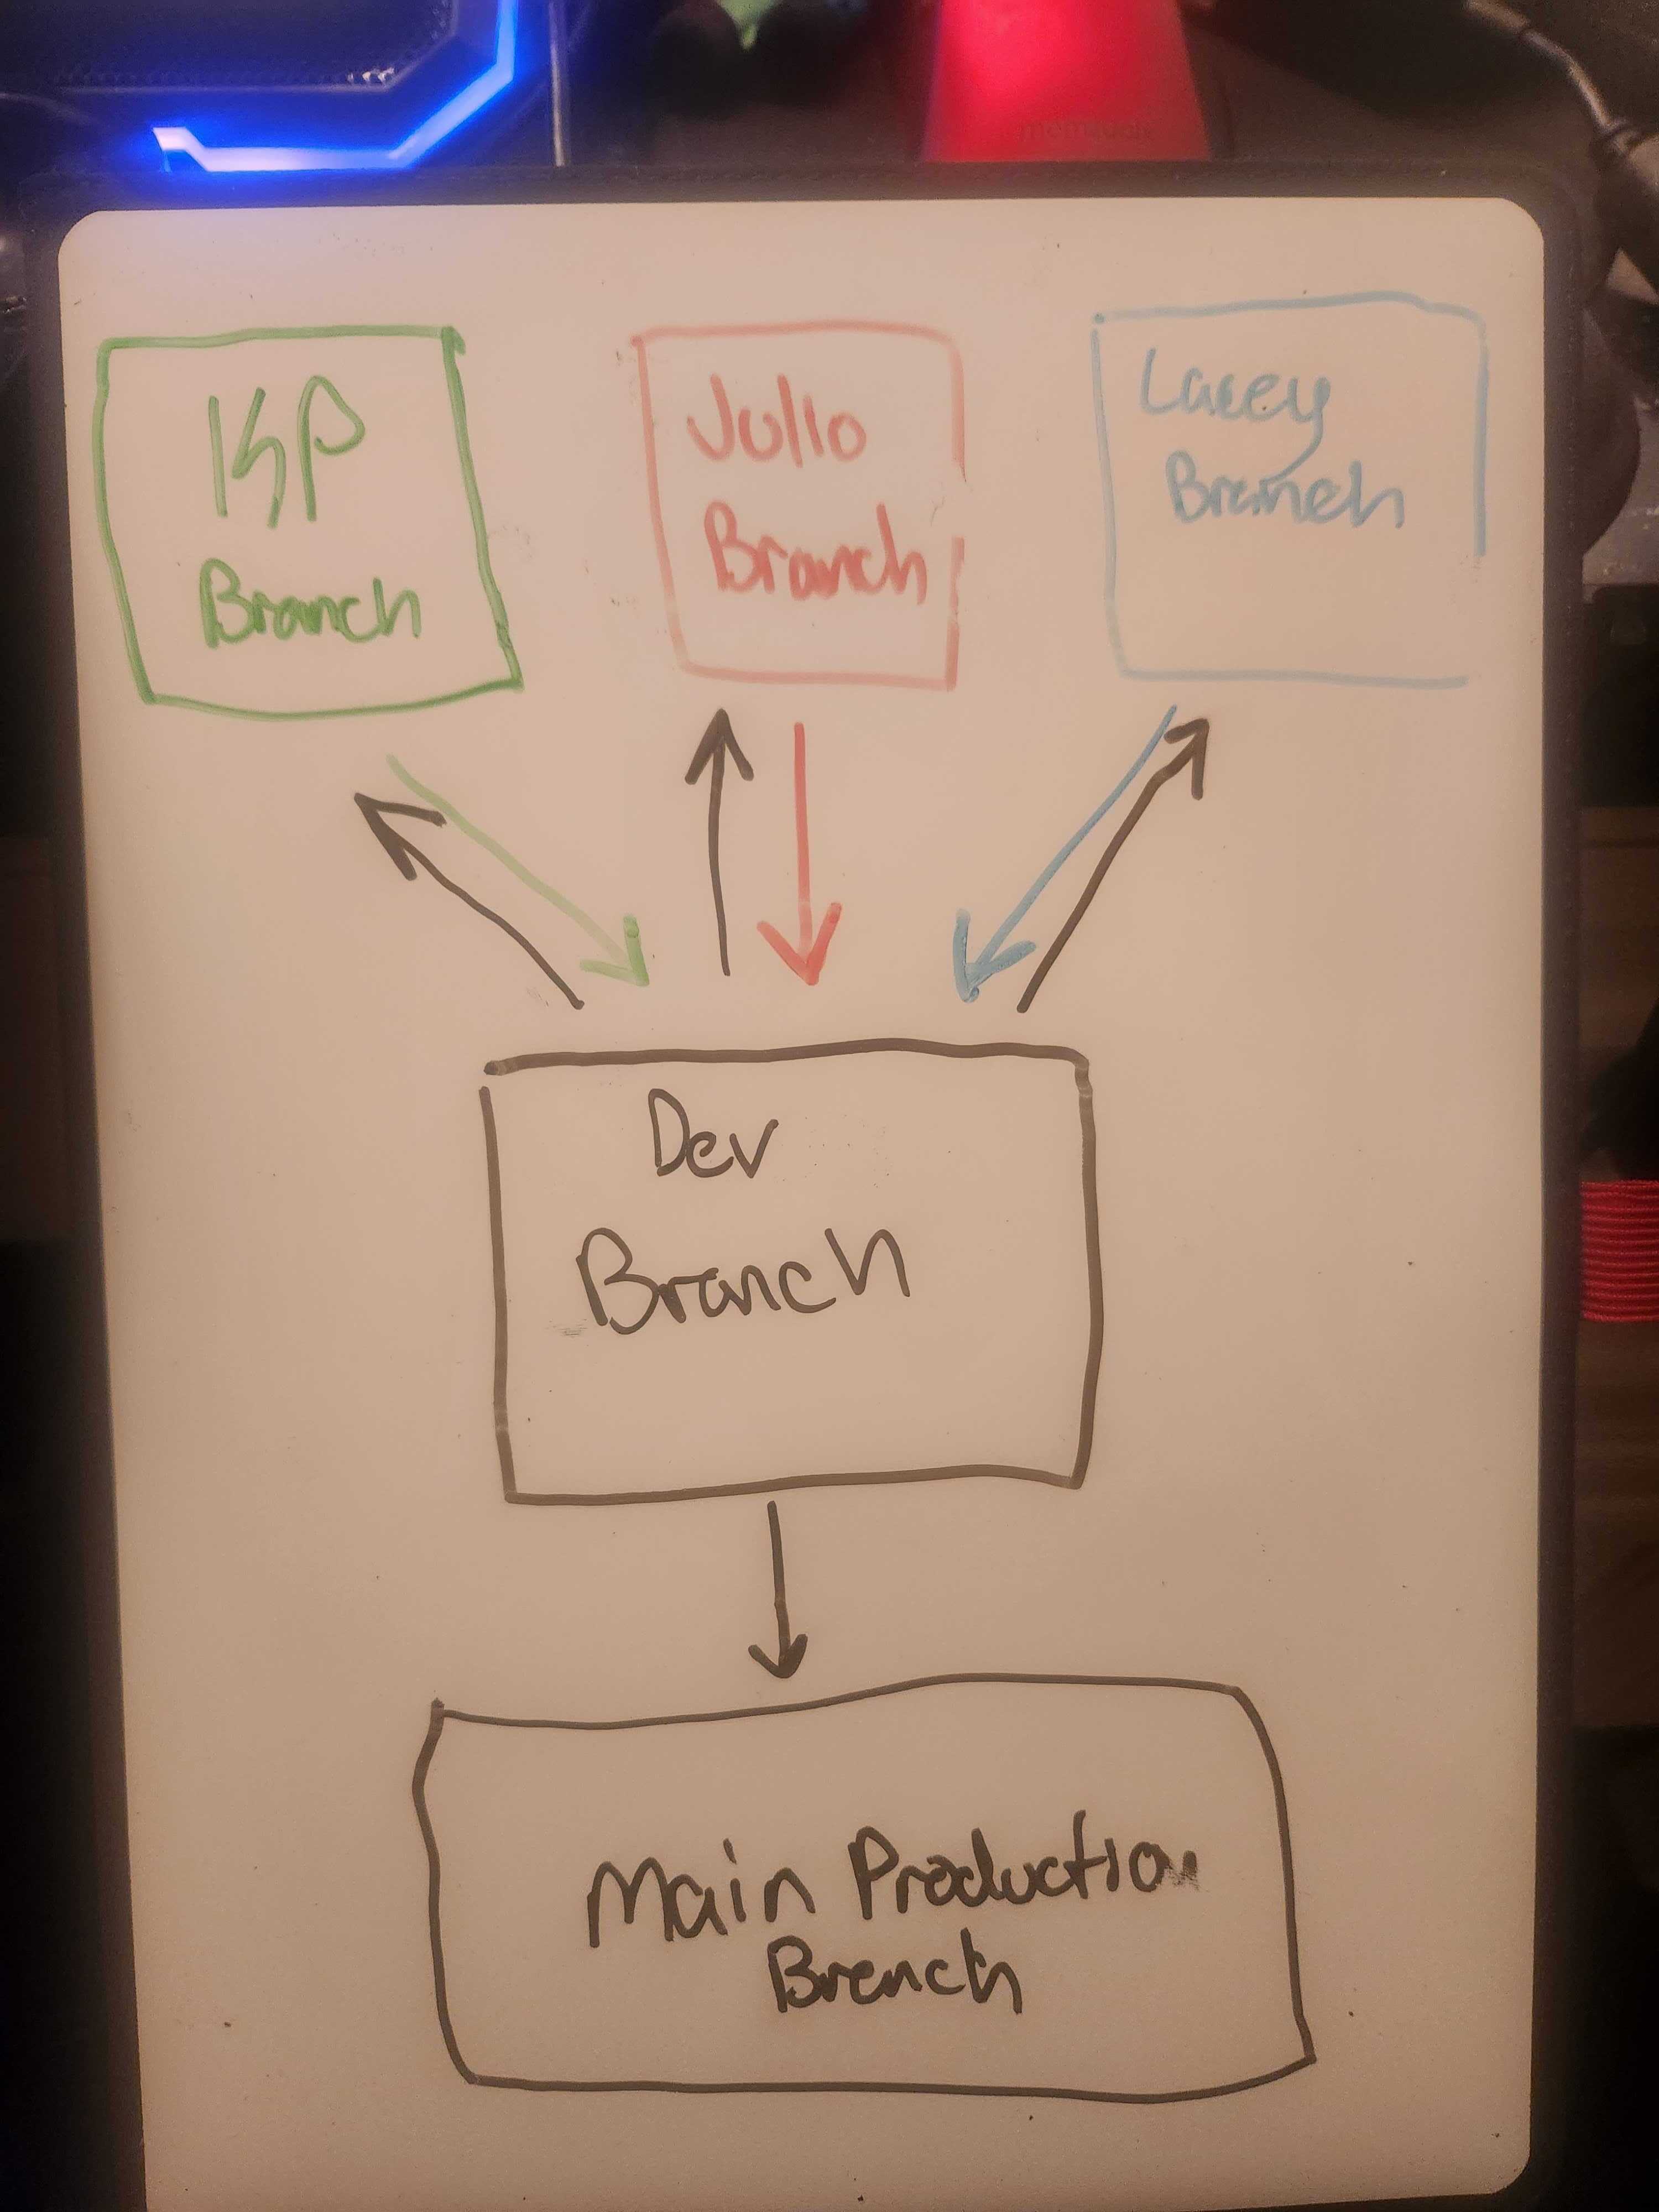 KP
Branch
Julio
Branch
Lacey
Branch
Dev
Branch
Main Production
Branch